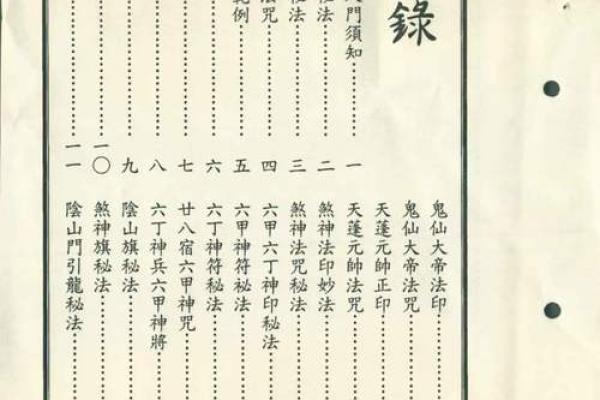 錄
門須知⋯⋯一
法⋯⋯二
法⋯⋯三
咒⋯⋯四
例⋯⋯五
⋯⋯六
⋯⋯七
⋯⋯八
⋯⋯九
⋯⋯一〇
⋯⋯一一
鬼仙大帝法印⋯⋯
鬼仙大帝法咒⋯⋯
天蓬元帥正印⋯⋯
天蓬元帥法咒⋯⋯
煞神法印妙法⋯⋯
煞神法咒秘法⋯⋯
六甲六丁神印秘法⋯⋯
六甲神符秘法⋯⋯
六丁神符秘法⋯⋯
廿八宿六甲神咒⋯⋯
六丁神兵六甲神將⋯⋯
陰山旗秘法⋯⋯
煞神旗秘法⋯⋯
陰山門引龍秘法⋯⋯